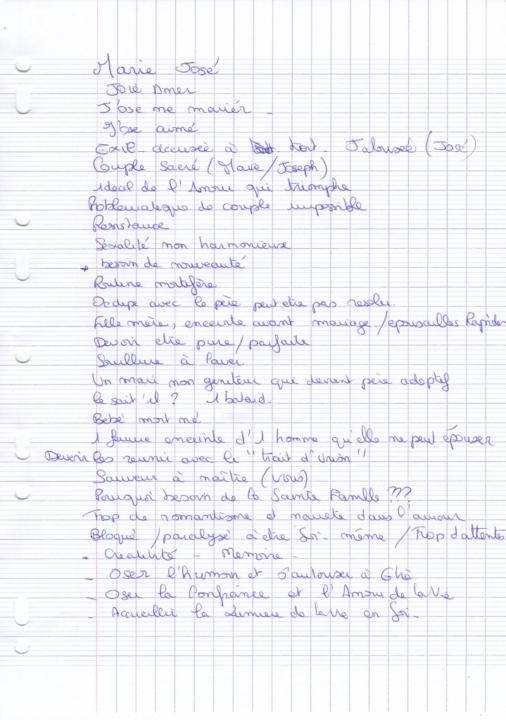 Marie José
Joie Amer
J'ose me marier -
J'ose aimé
Exil - accusée à tort - Jalousée (José)
Couple Sacré (Marie/Joseph)
ideal de l'Amour qui triomphe
Problematique de couple impossible
Resistance
Sexalité non harmonieuse
* besoin de nouveauté
Routine mortifère
Oedipe avec le père peut etre pas resolu.
Fille mère, enceinte avant mariage / épousailles Rapides
Devoir etre pure / parfaite
Souillure à laver
Un mari non geniteur qui devient père adoptif
le sait 'il ? 1 batard.
Bébé mort né
1 femme enceinte d'1 homme qu'elle ne peut épouser
Devoir les reunir avec le "trait d'union"
Sauveur à naître (vous)
Pourquoi besoin de la Sainte Famille ???
Trop de romantisme et naiveté dans l'amour
Bloqué / paralysé à etre soi-même / Trop d'attentes
. Créativité - Memoire -
- Oser l'humour et s'autoriser à
- Oser la Confiance et l'Amour de la Vie
- Accueillir la Lumiere de la vie en Soi -